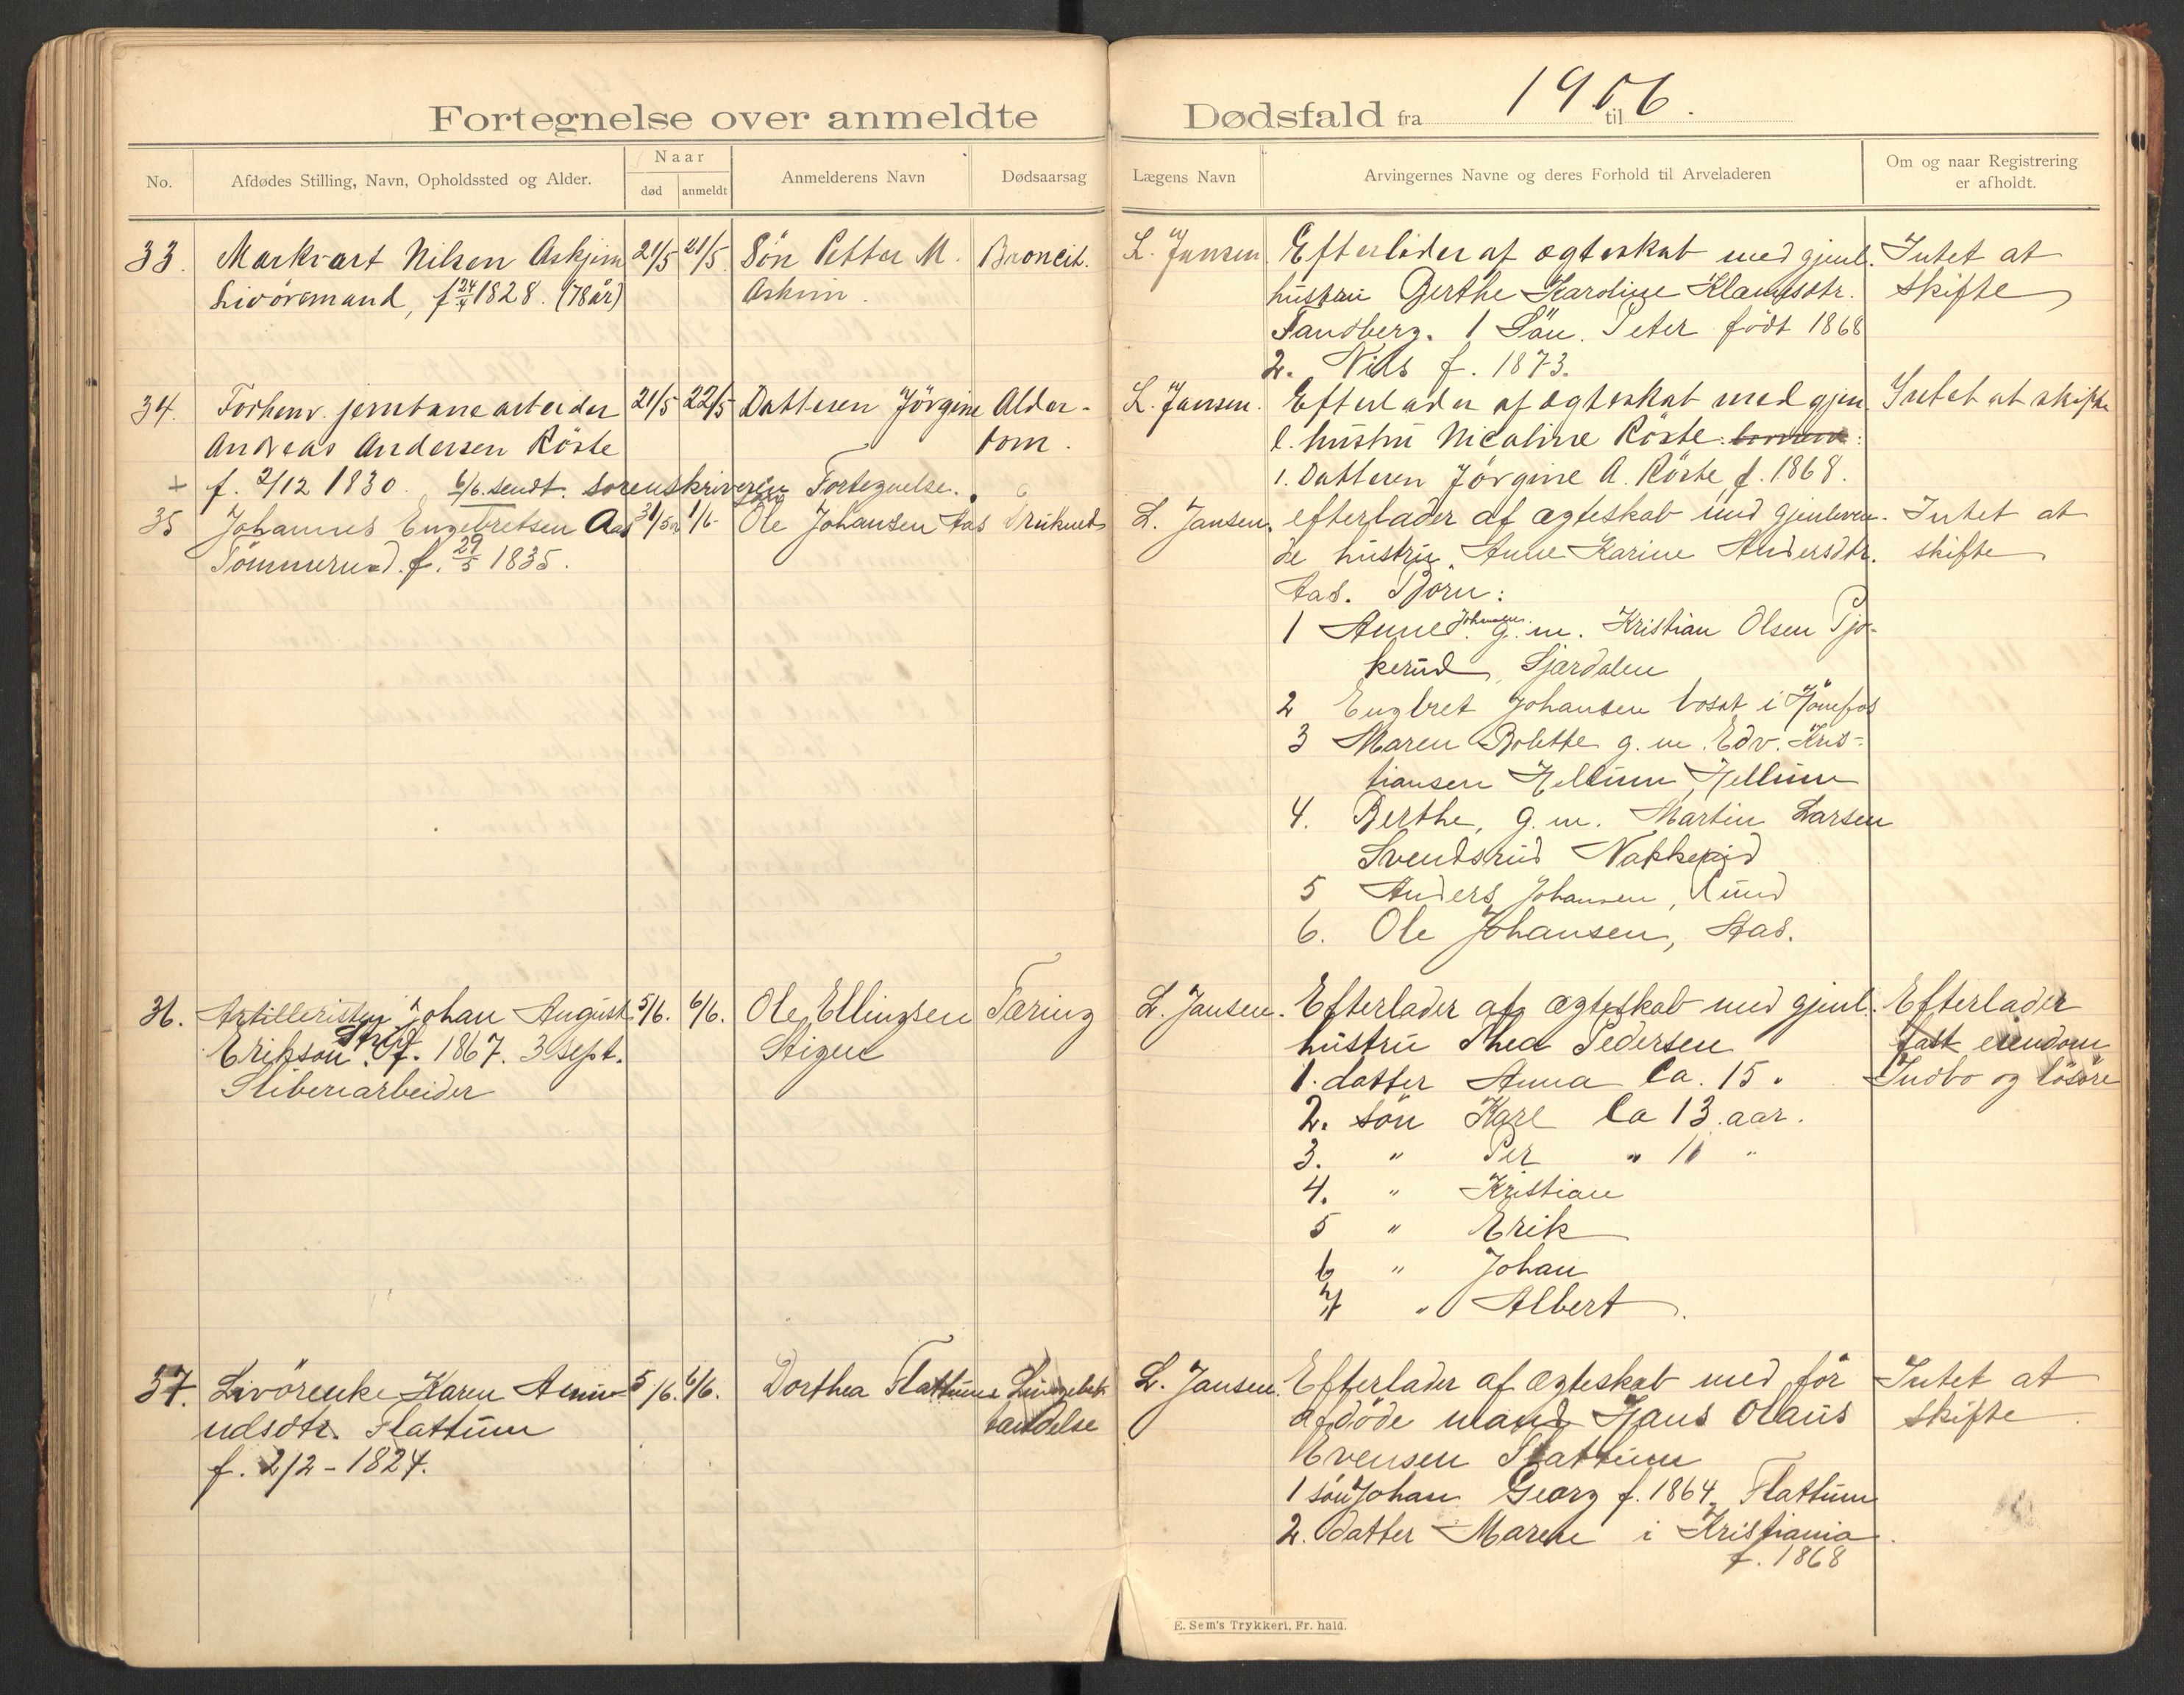 Fortegnelse over anmeldte Dødsfald fra 1906. til
No.
Afdødes Stilling, Navn, Opholdssted og Alder.
Naar
død
anmeldt
Anmelderens Navn
Dødsaarsag
Lægens Navn
Arvingernes Navne og deres Forhold til Arveladeren
Om og naar Registrering
er afholdt.
33.
Markvart Nilsen Askjim
Livöremand, f 24/4 1828. (78 år)
21/5
21/5
Sön Petter M.
Askim.
Broncit.
L. Jansen
Efterlader af ægteskab med gjenl.
hustru Berthe Karoline Klausdtr.
Sandberg. 1 Sön. Peter født 1868
2. Nils f. 1873.
Intet at
skifte
34.
Forhenv. jernbanearbeider
Andreas Andersen Röste
+ f. 2/12 1830. 6/6. sendt. sorenskriveren Fortegnelse.
21/5
22/5
Datteren Jörgine
Alder-
dom.
L. Jansen.
Efterlader af ægteskab med gjen
l. hustru Nicoline Röste.
1. Datteren Jörgine A. Röste f. 1868.
Intet at skifte
35
Johannes Engebretsen Aas
Tömmerud. f. 29/5 1835.
31/5
1/6
Ole Johansen Aas
Druknet
L. Jansen.
efterlader af ægteskab med gjenleven-
de hustru, Anne Karine Andersdtr.
Aas. Børn:
1 Anne Johansen. g. m. Kristian Olsen Tjo-
kerud, Sjørdalen
2 Engbret Johansen bosat i Hönefos
3 Maren Bolette g. m. Edv. Kris-
tiansen Hellum, Hellum
4. Berthe, g. m. Martin Larsen
Svendsrud Nakkerud
5 Anders Johansen, Rund
6. Ole Johansen, Aas.
Intet at
skifte
36.
Artilleristen Johan August
Erikson. f. 1867. 3 Sept.
Sliberiarbeider
5/6.
6/6.
Ole Ellingsen
Stigen
Tæring
L. Jansen.
Efterlader af ægteskab med gjenl.
hustru Thea Pedersen
1. datter Anna Ca. 15.
2. sön Karl Ca 13 aar.
3. " Per " 11 "
4. " Kristian
5 " Erik
6 " Johan
7 " Albert.
Efterlader
fast eiendom
Indbo og lösöre
37.
Livörenke Karen Amun-
udsdtr. Flattum
f. 2/2 - 1824.
5/6.
6/6.
Dorthea Flattum
Lungebe-
tændelse
L. Jansen.
Efterlader af ægteskab med för
afdöde mand Hans Olaus
Evensen Flattum
1 sön Johan Georg f. 1864. Flattum
2. datter Maren i Kristiania.
f. 1868
Intet at
skifte.
E. Sem's Trykkeri, Fr. hald.